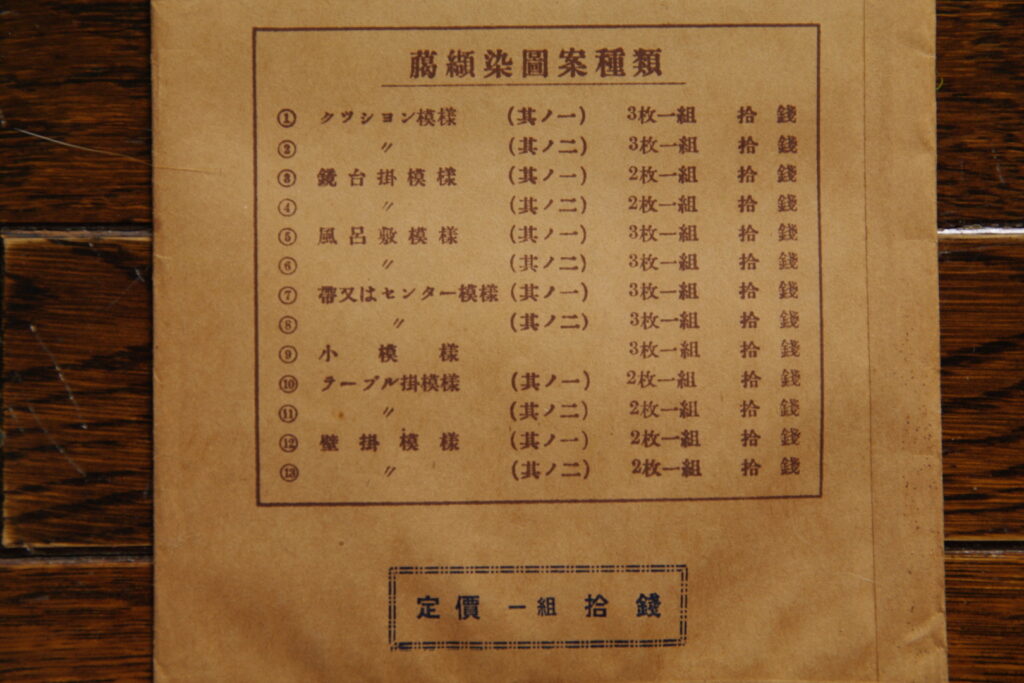 蔦纈染圖案種類
① クツシヨン模様 (其ノ一) 3枚一組 拾錢
② 〃 (其ノ二) 3枚一組 拾錢
③ 鏡台掛模様 (其ノ一) 2枚一組 拾錢
④ 〃 (其ノ二) 2枚一組 拾錢
⑤ 風呂敷模様 (其ノ一) 3枚一組 拾錢
⑥ 〃 (其ノ二) 3枚一組 拾錢
⑦ 帶又はセンター模様 (其ノ一) 3枚一組 拾錢
⑧ 〃 (其ノ二) 3枚一組 拾錢
⑨ 小模様 3枚一組 拾錢
⑩ テーブル掛模様 (其ノ一) 2枚一組 拾錢
⑪ 〃 (其ノ二) 2枚一組 拾錢
⑫ 壁掛模様 (其ノ一) 2枚一組 拾錢
⑬ 〃 (其ノ二) 2枚一組 拾錢
定價 一組 拾錢